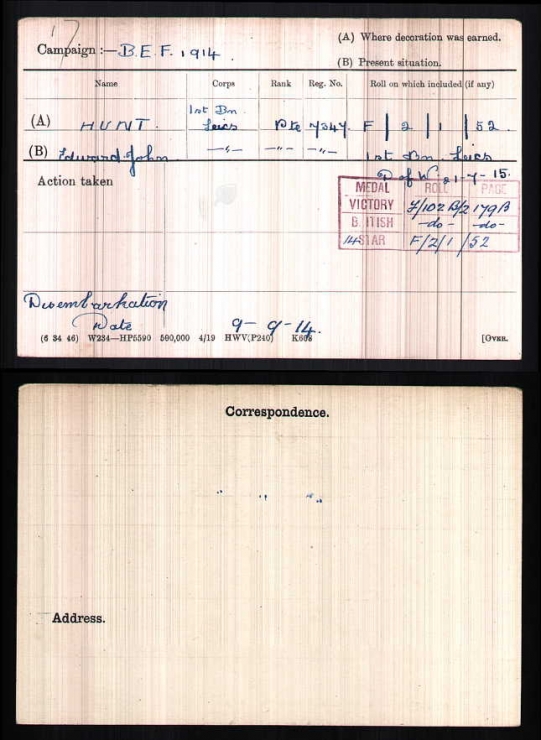 17
Campaign :— B.E.F. 1914.
(A) Where decoration was earned.
(B) Present situation.
Name Corps Rank Reg. No. Roll on which included (if any)
(A) HUNT. 1st Bn Leics Pte 7347. F/2/1/52.
(B) Edward John —"— —"— —"— 1st Bn. Leics
D of W. 21-7-15.
Action taken
MEDAL ROLL PAGE
VICTORY F/102 B/2 179B
BRITISH -do- -do-
14 STAR F/2/1 /52
Disembarkation
Date 9-9-14.
(6 34 46) W234—HP5590 500,000 4/19 HWV(P240) K608
[OVER.
Correspondence.
Address.